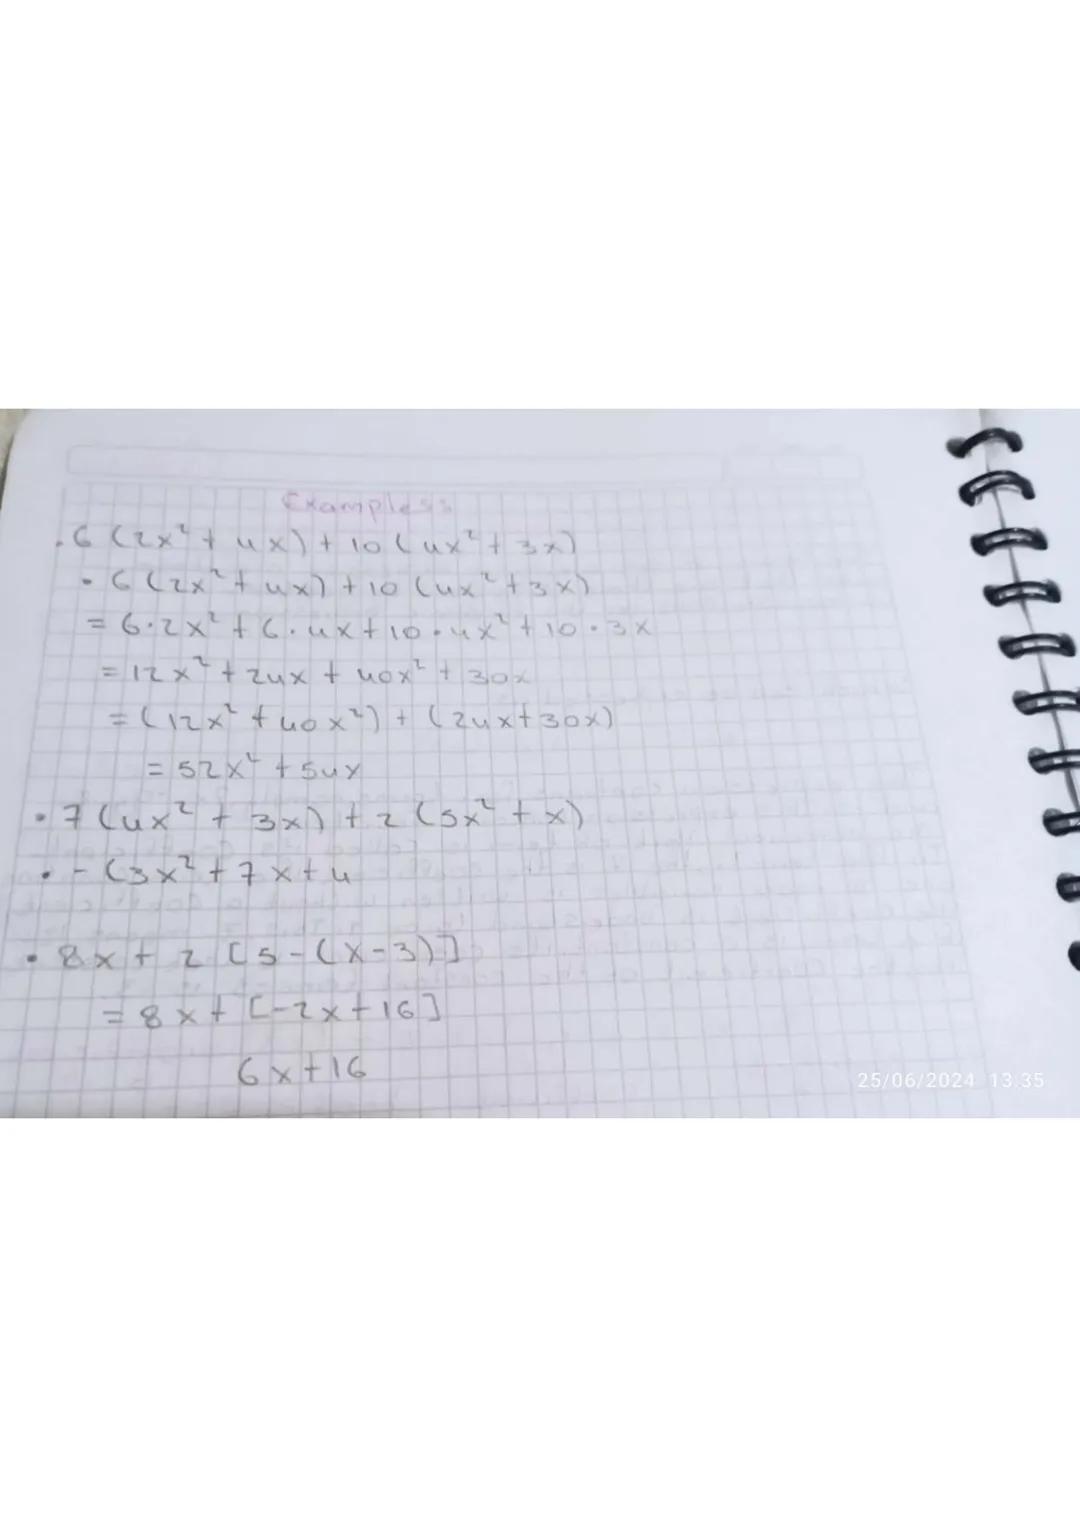 Exampless
. 6 (2x² + 4x) + 10 (4x² + 3x)
• 6 (2x² + 4x) + 10 (4x² + 3x)
= 6 · 2x² + 6 · 4x + 10 · 4x² + 10 · 3x
= 12x² + 24x + 40x² + 30x
= (12x² + 40x²) + (24x + 30x)
= 52x² + 54x
• 7 (4x² + 3x) + 2 (5x² + x)
• - (3x² + 7x + 4
• 8x + 2 [5 - (x - 3)]
= 8x + [-2x + 16]
6x + 16
25/06/2024 13.35